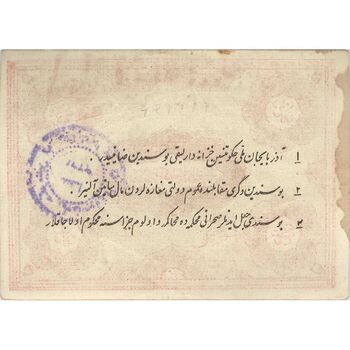 ۱ آذربایجان ملی حکومتنین خزانه دارلیقی بو سندین ضامنیدیر.
۲ بو سندین دگری مقابلنده عموم دولتی مغازه لردن مال ساتین آلنیر.
۳ بو سندی جعل ایدنلر صحرائی محکمه ده محاکمه و اولوم جزاسنه محکوم اولاجاقلار